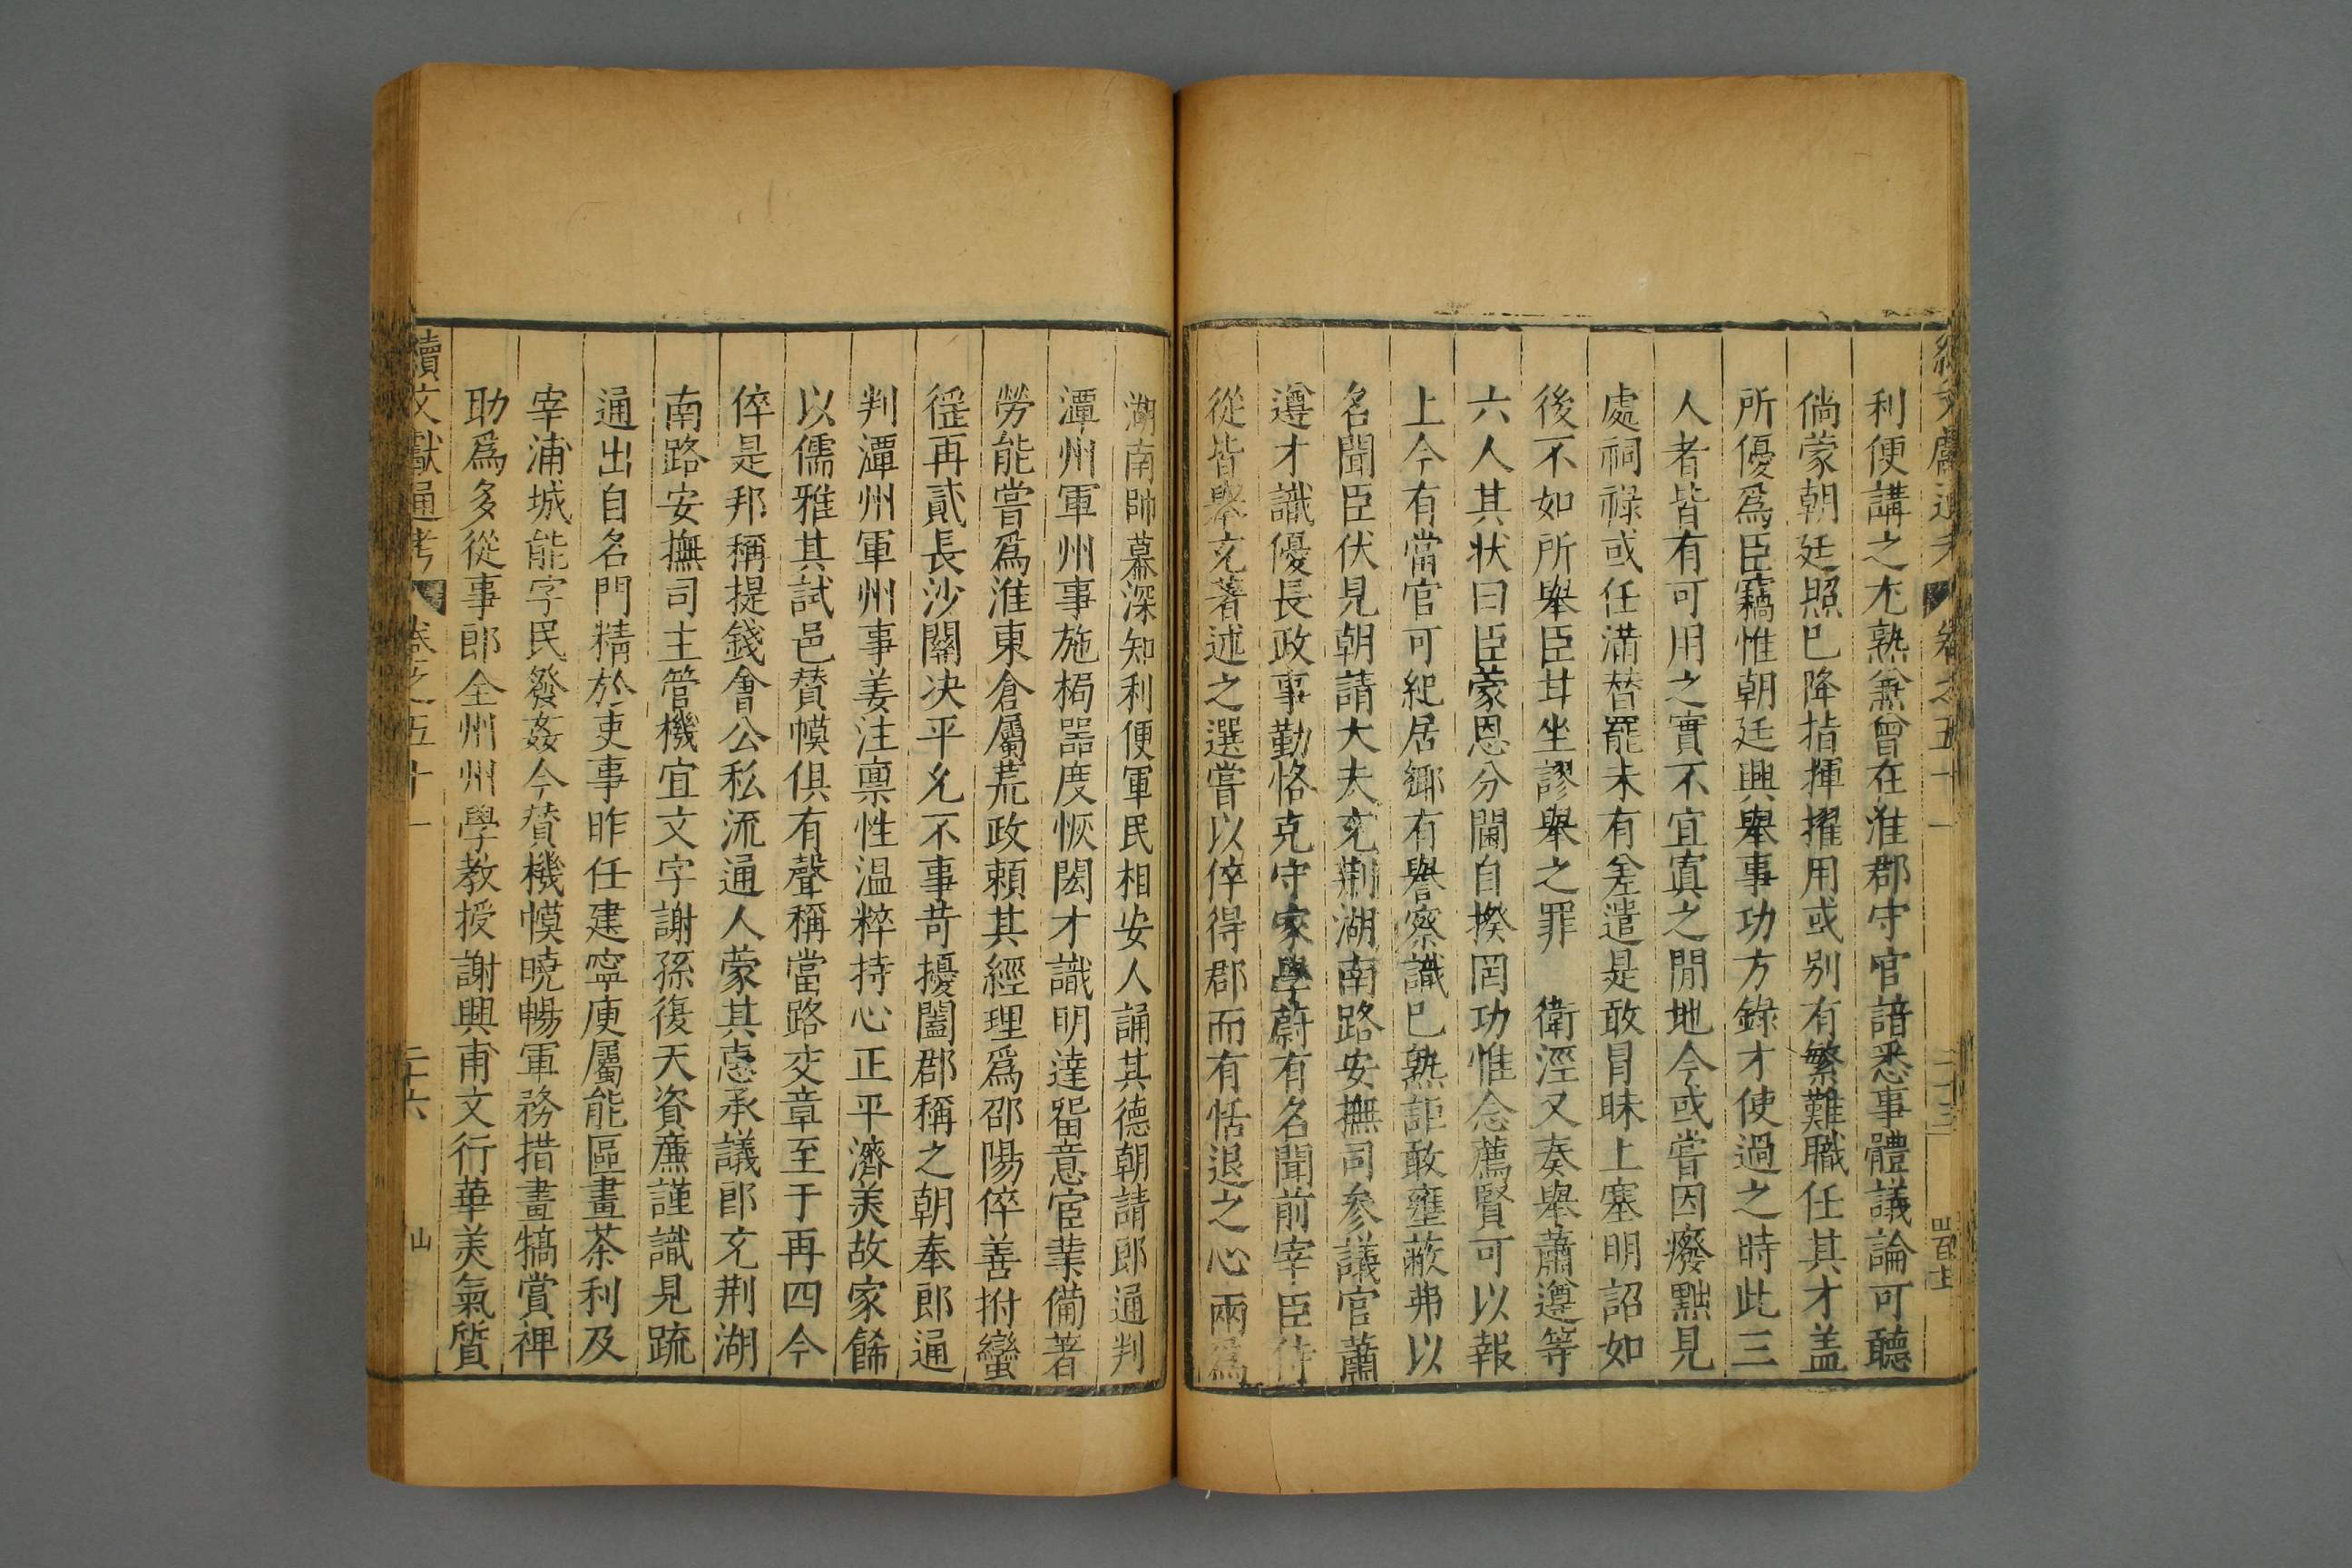 續文獻通考 卷之五十一 二十三
利便講之尤熟兼曾在淮郡守官諳悉事體議論可聽
倘蒙朝廷照已降指揮擢用或别有繁難職任其才盖
所優爲臣竊惟朝廷興舉事功方錄才使過之時此三
人者皆有可用之實不宜寘之閒地今或嘗因癈黜見
處祠祿或任滿替罷未有差遣是敢冐昧上塞明詔如
後不如所舉臣甘坐謬舉之罪 衛涇又奏舉蕭遵等
六人其状曰臣蒙恩分閫自揆罔功惟念薦賢可以報
上今有當官可紀居鄉有譽察識已熟詎敢壅蔽弗以
名聞臣伏見朝請大夫充荆湖南路安撫司参議官蕭
遵才識優長政事勤恪克守家學蔚有名聞前宰臣侍
從皆舉充著述之選嘗以倅得郡而有恬退之心兩爲
湖南帥幕深知利便軍民相安人誦其德朝請郎通判
潭州軍州事施㮚噐度恢閎才識明達畱意宦業備著
勞能嘗爲淮東倉屬荒政頼其經理爲邵陽倅善拊蠻
徭再貳長沙關决平允不事苛擾闔郡稱之朝奉郎通
判潭州軍州事姜注禀性温粹持心正平濟美故家餙
以儒雅其試邑賛幙俱有聲稱當路交章至于再四今
倅是邦稱提錢會公私流通人蒙其惠承議郎充荆湖
南路安撫司主管機宜文字謝孫復天資亷謹識見疏
通出自名門精於吏事昨任建寧庾屬能區畫茶利及
宰浦城能字民發姦今賛機幙暁暢軍務措畫犒賞裨
助爲多從事郎全州州學教授謝興甫文行華美氣質
續文獻通考 卷之五十一 二十六 山